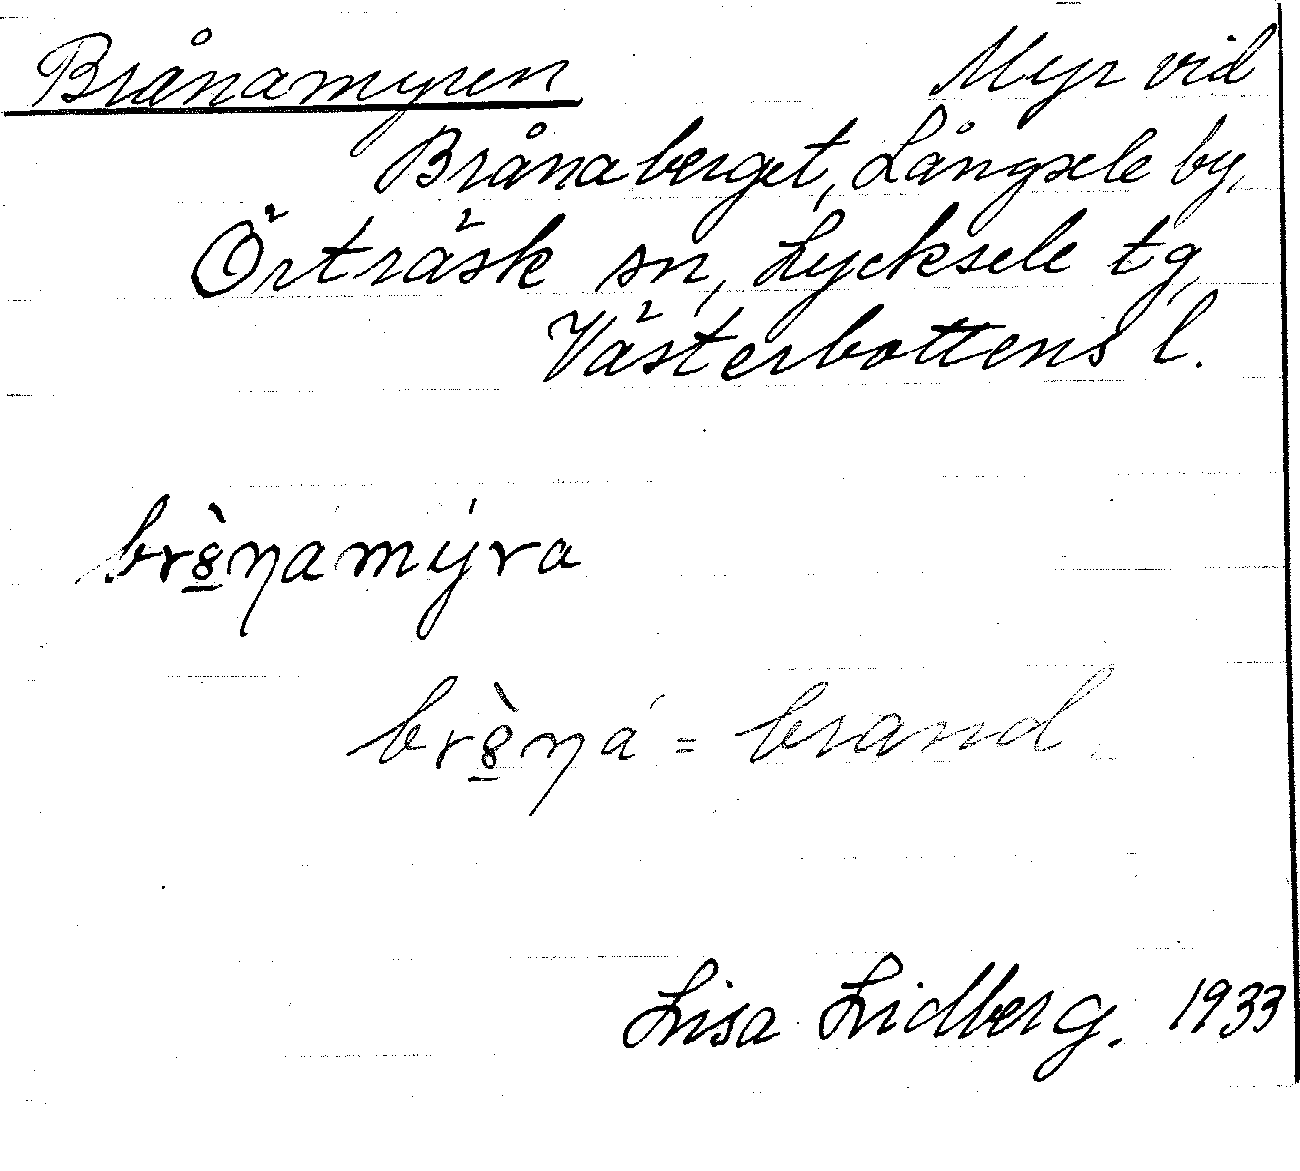 Brånamyren Myr vid
Brånaberget, Långsele by,
Örträsk sn, Lycksele tg,
Västerbottens l.
br8̲̀ŋamýra
br8̲̀ŋá = brand.
Lisa Lidberg. 1933